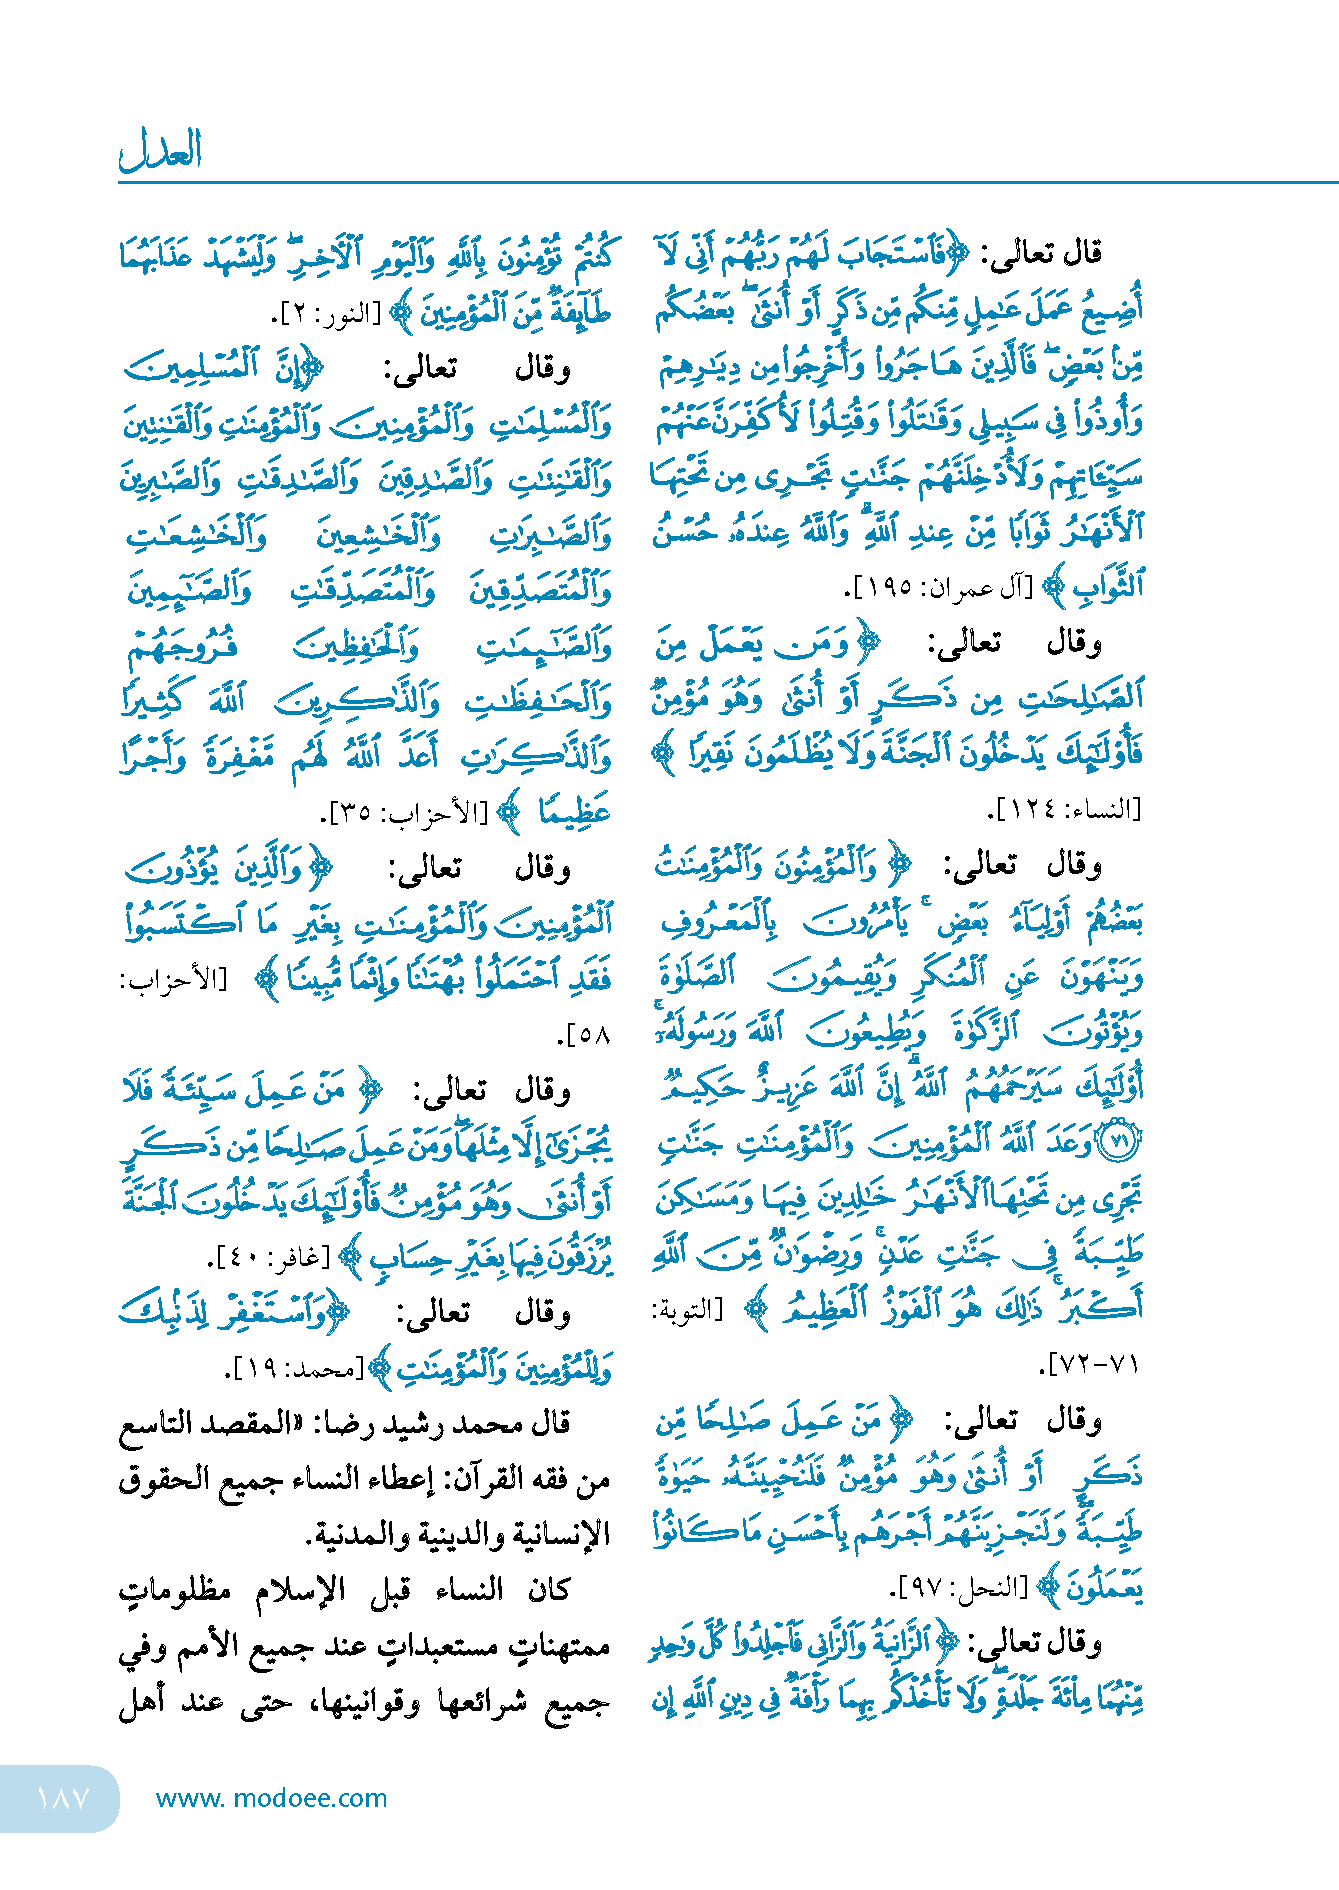 العدل
قال تعالى: ﴿فَٱسْتَجَابَ لَهُمْ رَبُّهُمْ أَنِّى لَآ
أُضِيعُ عَمَلَ عَٰمِلٍ مِّنكُم مِّن ذَكَرٍ أَوْ أُنثَىٰ ۖ بَعْضُكُم
مِّنۢ بَعْضٍ ۖ فَٱلَّذِينَ هَاجَرُوا۟ وَأُخْرِجُوا۟ مِن دِيَٰرِهِمْ
وَأُوذُوا۟ فِى سَبِيلِى وَقَٰتَلُوا۟ وَقُتِلُوا۟ لَأُكَفِّرَنَّ عَنْهُمْ
سَيِّـَٔاتِهِمْ وَلَأُدْخِلَنَّهُمْ جَنَّٰتٍ تَجْرِى مِن تَحْتِهَا
ٱلْأَنْهَٰرُ ثَوَابًا مِّنْ عِندِ ٱللَّهِ ۗ وَٱللَّهُ عِندَهُۥ حُسْنُ
ٱلثَّوَابِ ﴾ [آل عمران: ١٩٥].
وقال تعالى: ﴿ وَمَن يَعْمَلْ مِنَ
ٱلصَّٰلِحَٰتِ مِن ذَكَرٍ أَوْ أُنثَىٰ وَهُوَ مُؤْمِنٌ
فَأُو۟لَٰٓئِكَ يَدْخُلُونَ ٱلْجَنَّةَ وَلَا يُظْلَمُونَ نَقِيرًا ﴾
[النساء: ١٢٤].
وقال تعالى: ﴿ وَٱلْمُؤْمِنُونَ وَٱلْمُؤْمِنَٰتُ
بَعْضُهُمْ أَوْلِيَآءُ بَعْضٍ ۚ يَأْمُرُونَ بِٱلْمَعْرُوفِ
وَيَنْهَوْنَ عَنِ ٱلْمُنكَرِ وَيُقِيمُونَ ٱلصَّلَوٰةَ
وَيُؤْتُونَ ٱلزَّكَوٰةَ وَيُطِيعُونَ ٱللَّهَ وَرَسُولَهُۥٓ ۚ
أُو۟لَٰٓئِكَ سَيَرْحَمُهُمُ ٱللَّهُ ۗ إِنَّ ٱللَّهَ عَزِيزٌ حَكِيمٌ
٧١ وَعَدَ ٱللَّهُ ٱلْمُؤْمِنِينَ وَٱلْمُؤْمِنَٰتِ جَنَّٰتٍ
تَجْرِى مِن تَحْتِهَا ٱلْأَنْهَٰرُ خَٰلِدِينَ فِيهَا وَمَسَٰكِنَ
طَيِّبَةً فِى جَنَّٰتِ عَدْنٍ ۚ وَرِضْوَٰنٌ مِّنَ ٱللَّهِ
أَكْبَرُ ۚ ذَٰلِكَ هُوَ ٱلْفَوْزُ ٱلْعَظِيمُ ﴾ [التوبة:
٧١-٧٢].
وقال تعالى: ﴿ مَنْ عَمِلَ صَٰلِحًا مِّن
ذَكَرٍ أَوْ أُنثَىٰ وَهُوَ مُؤْمِنٌ فَلَنُحْيِيَنَّهُۥ حَيَوٰةً
طَيِّبَةً ۖ وَلَنَجْزِيَنَّهُمْ أَجْرَهُم بِأَحْسَنِ مَا كَانُوا۟
يَعْمَلُونَ ﴾ [النحل: ٩٧].
وقال تعالى: ﴿ ٱلزَّانِيَةُ وَٱلزَّانِى فَٱجْلِدُوا۟ كُلَّ وَٰحِدٍ
مِّنْهُمَا مِا۟ئَةَ جَلْدَةٍ ۖ وَلَا تَأْخُذْكُم بِهِمَا رَأْفَةٌ فِى دِينِ ٱللَّهِ إِن
كُنتُمْ تُؤْمِنُونَ بِٱللَّهِ وَٱلْيَوْمِ ٱلْـَٔاخِرِ ۖ وَلْيَشْهَدْ عَذَابَهُمَا
طَآئِفَةٌ مِّنَ ٱلْمُؤْمِنِينَ ﴾ [النور: ٢].
وقال تعالى: ﴿إِنَّ ٱلْمُسْلِمِينَ
وَٱلْمُسْلِمَٰتِ وَٱلْمُؤْمِنِينَ وَٱلْمُؤْمِنَٰتِ وَٱلْقَٰنِتِينَ
وَٱلْقَٰنِتَٰتِ وَٱلصَّٰدِقِينَ وَٱلصَّٰدِقَٰتِ وَٱلصَّٰبِرِينَ
وَٱلصَّٰبِرَٰتِ وَٱلْخَٰشِعِينَ وَٱلْخَٰشِعَٰتِ
وَٱلْمُتَصَدِّقِينَ وَٱلْمُتَصَدِّقَٰتِ وَٱلصَّٰٓئِمِينَ
وَٱلصَّٰٓئِمَٰتِ وَٱلْحَٰفِظِينَ فُرُوجَهُمْ
وَٱلْحَٰفِظَٰتِ وَٱلذَّٰكِرِينَ ٱللَّهَ كَثِيرًا
وَٱلذَّٰكِرَٰتِ أَعَدَّ ٱللَّهُ لَهُم مَّغْفِرَةً وَأَجْرًا
عَظِيمًا ﴾ [الأحزاب: ٣٥].
وقال تعالى: ﴿ وَٱلَّذِينَ يُؤْذُونَ
ٱلْمُؤْمِنِينَ وَٱلْمُؤْمِنَٰتِ بِغَيْرِ مَا ٱكْتَسَبُوا۟
فَقَدِ ٱحْتَمَلُوا۟ بُهْتَٰنًا وَإِثْمًا مُّبِينًا ﴾ [الأحزاب:
٥٨].
وقال تعالى: ﴿ مَنْ عَمِلَ سَيِّئَةً فَلَا
يُجْزَىٰٓ إِلَّا مِثْلَهَا ۖ وَمَنْ عَمِلَ صَٰلِحًا مِّن ذَكَرٍ
أَوْ أُنثَىٰ وَهُوَ مُؤْمِنٌ فَأُو۟لَٰٓئِكَ يَدْخُلُونَ ٱلْجَنَّةَ
يُرْزَقُونَ فِيهَا بِغَيْرِ حِسَابٍ ﴾ [غافر: ٤٠].
وقال تعالى: ﴿وَٱسْتَغْفِرْ لِذَنۢبِكَ
وَلِلْمُؤْمِنِينَ وَٱلْمُؤْمِنَٰتِ ﴾ [محمد: ١٩].
قال محمد رشيد رضا: «المقصد التاسع
من فقه القرآن: إعطاء النساء جميع الحقوق
الإنسانية والدينية والمدنية.
كان النساء قبل الإسلام مظلوماتٍ
ممتهناتٍ مستعبداتٍ عند جميع الأمم وفي
جميع شرائعها وقوانينها، حتى عند أهل
www. modoee.com
١٨٧